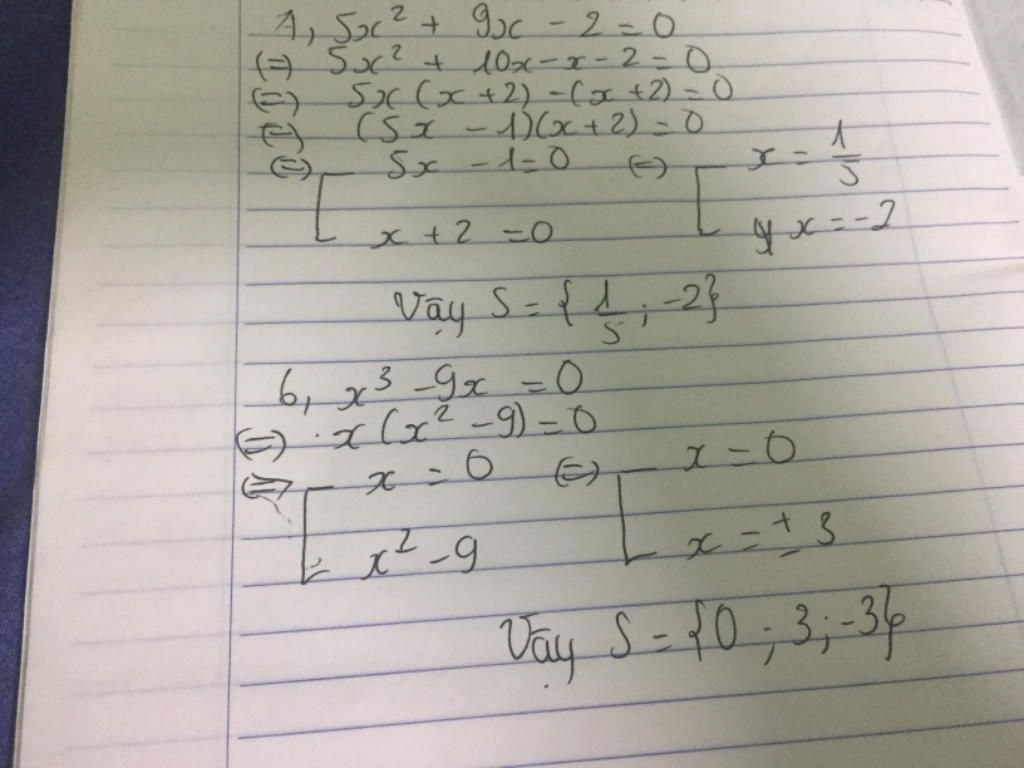 1, 5x² + 9x - 2 = 0
(=) 5x² + 10x - x - 2 = 0
(=) 5x (x + 2) - (x + 2) = 0
(=) (5x - 1)(x + 2) = 0
(=) [ 5x - 1 = 0 (=) [ x = 1/5
x + 2 = 0 x = -2
Vậy S = { 1/5 ; -2 }
6, x³ - 9x = 0
(=) x (x² - 9) = 0
(=) [ x = 0 (=) [ x = 0
x² - 9 x = ± 3
Vậy S = { 0 ; 3 ; -3 }